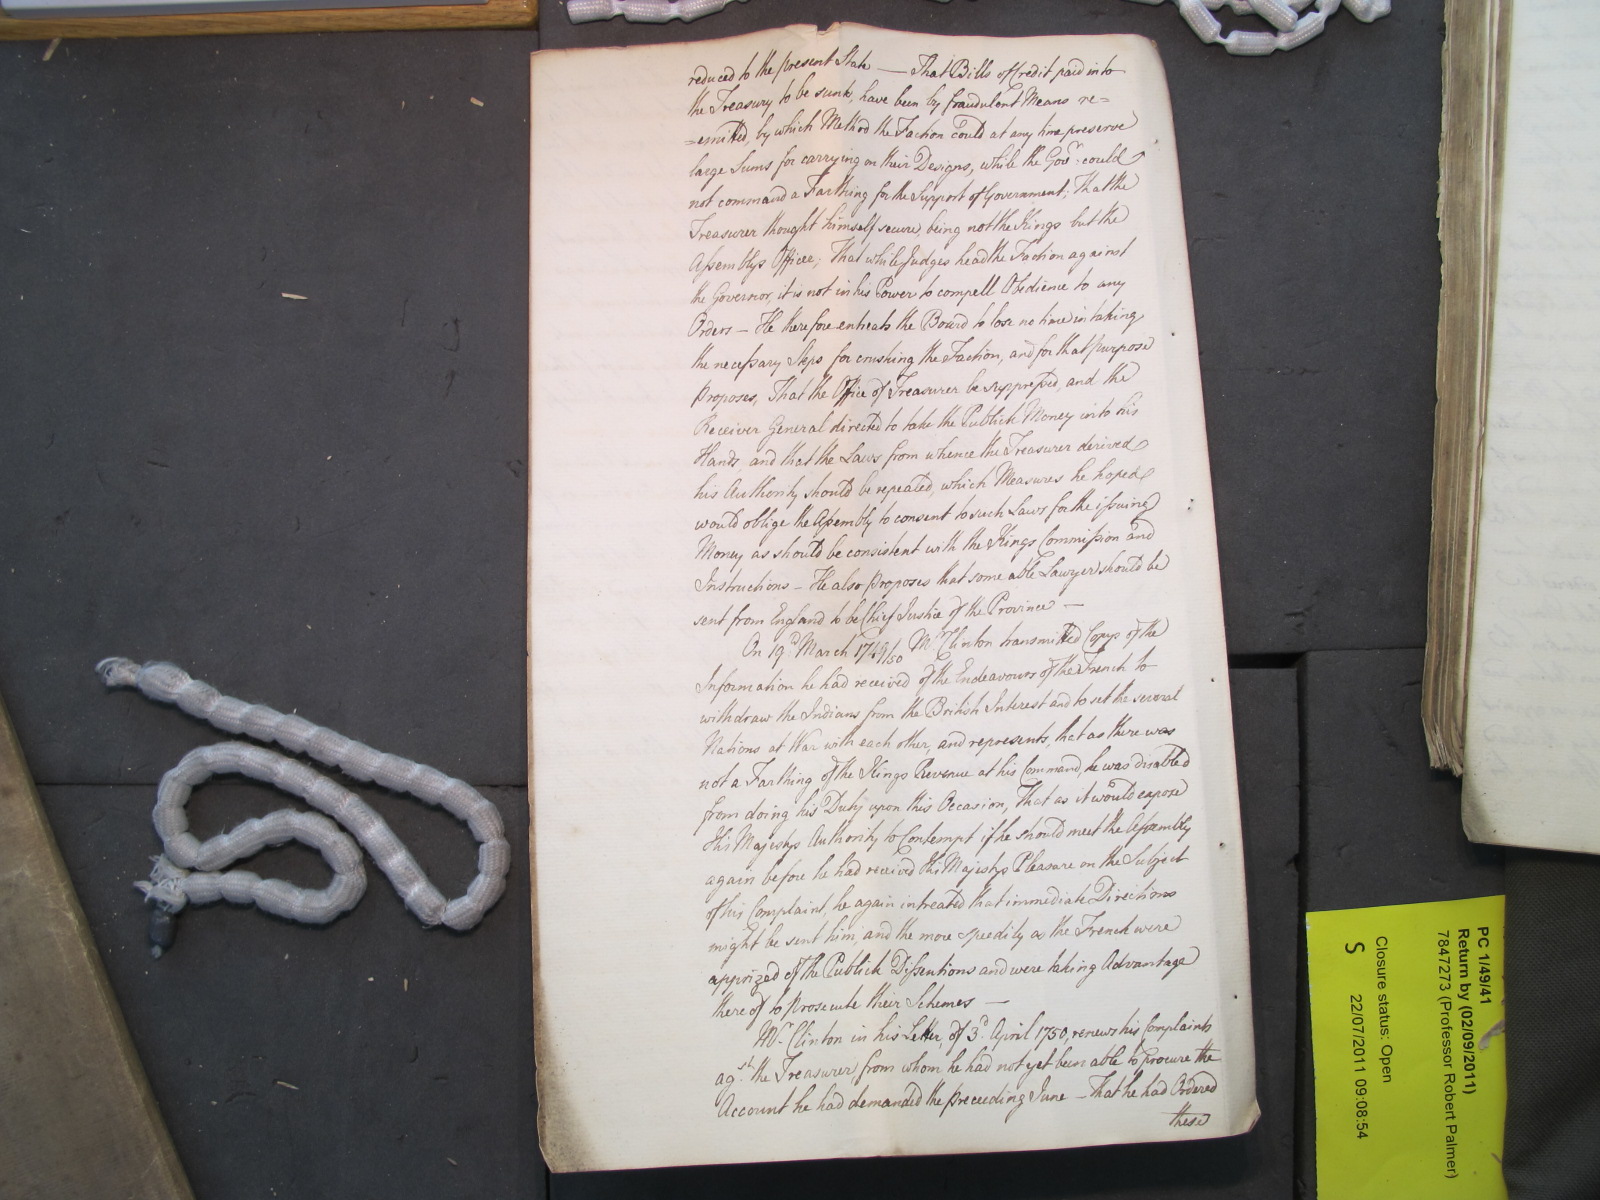 reduced to the present State — That Bills of Credit paid into
the Treasury to be sunk, have been by fraudulent Means re=
=emitted, by which Method the Faction could at any time preserve
large Sums for carrying on their Designs, while the Govr. could
not command a Farthing for the Support of Government; That the
Treasurer thought himself secure, being not the Kings but the
Assemblys Officer; That while Judges head the Faction against
the Governor, it is not in his Power to compell Obedience to any
Orders — He therefore entreats the Board to lose no time in taking
the necessary Steps for crushing the Faction, and for that purpose
proposes, That the Office of Treasurer be suppressed, and the
Receiver General directed to take the Publick Money into his
Hands and that the Laws from whence the Treasurer derived
his Authority should be repealed, which Measures he hoped
would oblige the Assembly to consent to such Laws for the issuing
Money as should be consistent with the Kings Commission and
Instructions — He also proposes that some able Lawyer should be
sent from England to be Chief Justice of the Province —
On 19th March 1749/50 Mr. Clinton transmitted Copys of the
Information he had received of the Endeavours of the French to
withdraw the Indians from the British Interest and to set the several
Nations at War with each other, and represents, that as there was
not a Farthing of the Kings Revenue at his Command, he was disabled
from doing his Duty upon this Occasion, That as it would expose
His Majestys Authority to Contempt if he should meet the Assembly
again before he had received His Majestys Pleasure on the Subject
of his Complaint, he again intreated that immediate Directions
might be sent him, and the more speedily as the French were
apprized of the Publick Dissentions and were taking Advantage
thereof to prosecute their Schemes —
Mr. Clinton in his Letter, of 3d. April 1750, renews his Complaints
agst. the Treasurer, from whom he had not yet been able to procure the
Account he had demanded the preceeding June — That he had Ordered
these
PC 1/49/41
Return by (02/09/2011)
7847273 (Professor Robert Palmer)
Closure status: Open
S 22/07/2011 09:08:54